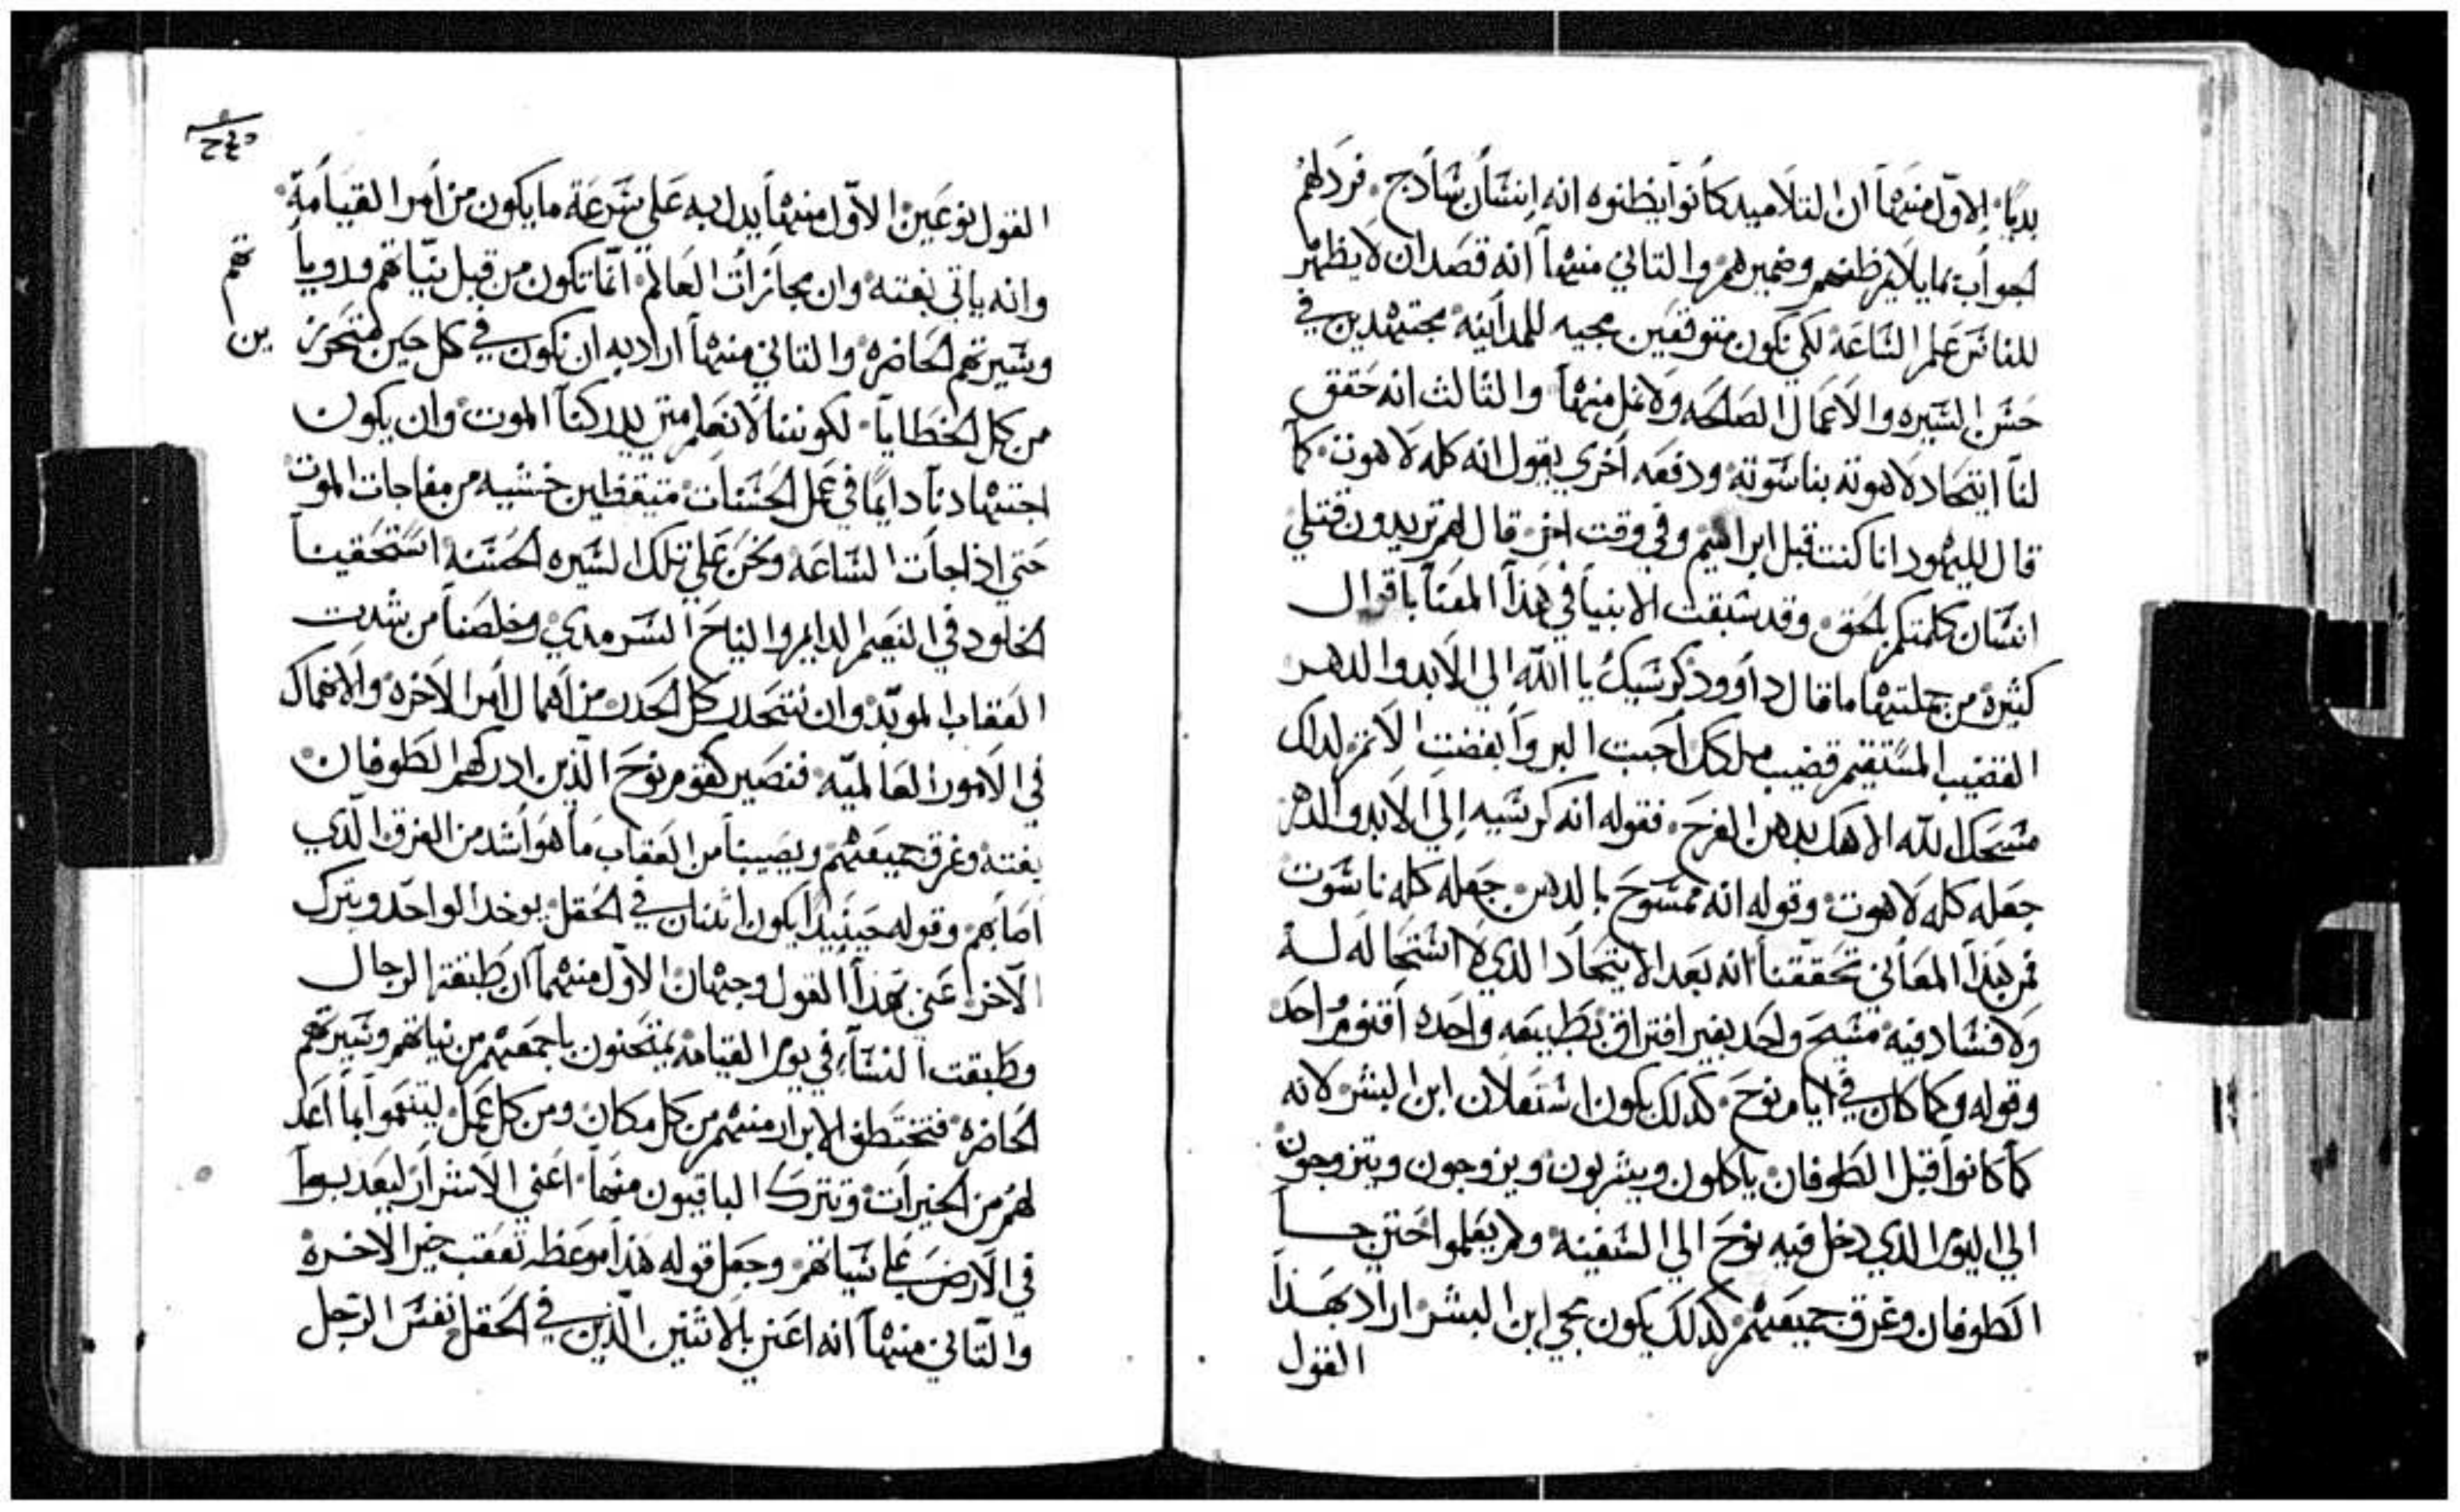 بديًا. الاول منهما ان التلاميد كانوا يظنوه انه انسان سادج. فرد لهم
الجواب بما يلايم ظنهم وضميرهم والتاني منهما انه قصد ان لا يظهر
للناس علم الساعه لكي نكون متوقعين مجيه للمداينه مجتهدين في
حسن السيره والاعمال الصالحه ولا نمل منها والثالث انه حقق
لنا اتحاد لاهوته بناسوته ودفعه اخري يقول انه كله لاهوت. كما
قال لليهود انا كنت قبل ابراهيم وفي وقت اخر قال لهم تريدون قتلي
انسان كلمتكم بالحق. وقد سبقت الانبيا في هذا المعنا باقوال
كثيرة من جملتها ما قال داوود كرسيك يا الله الي الابد والدهر
القضيب المستقيم قضيب ملكك احببت البر وابغضت الاتم لدلك
مسحك الله الاهك بدهن الفرح. فقوله انه كرسيه الي الابد والدهر
جعله كله لاهوت وقوله انه ممسوح بالدهن جعله كله ناسوت
فمن هذا المعاني تحققنا انه بعد الاتحاد الدي لا استحاله له
ولا فساد فيه مسيح واحد بغير افتراق بطبيعه واحده اقنوم واحد
وقوله وكما كان في ايام نوح. كدلك يكون استعلان ابن البشر لانه
كما كانوا قبل الطوفان ياكلون ويشربون ويزوجون ويتزوجون
الي اليوم الدي دخل فيه نوح الي السفينه ولم يعلموا حتي جا
الطوفان وغرق جميعهم كدلك يكون مجي ابن البشر اراد بهذا
القول
القول نوعين الاول منهما يدل به علي سرعة ما يكون من امر القيامة
وانه ياتي بغته وان مجازات العالم انما تكون من قبل نياتهم ورويا
تهم
وسيرتهم الحاضره والتاني منهما اراد به ان نكون في كل حين متحرز
ين
من كل الخطايا. لكوننا لا نعلم متي يدركنا الموت وان يكون
اجتهادنا دايمًا في عمل الحسنات متيقظين خشيه من مفاجات الموت
حتي ادا جات الساعه ونحن علي تلك السيره الحسنه استحقينا
الخلود في النعيم الدايم والنياح السرمدي وخلصنا من شدت
العقاب الموبد وان نتحدر كل الحدر من اهمال امر الاخره والانهماك
في الامور العالميه فنصير كقوم نوح الدين ادركهم الطوفان
بغته وغرق جميعهم ويصيبنا من العقاب ما هو اشد من الغرق الدي
اصابهم وقوله حينيدا يكون اتنان في الحقل يوخد الواحد ويترك
الاخر اعني بهذا القول وجهان الاول منهما ان طبقة الرجال
وطبقت النسآء في يوم القيامه يمتحنون باجمعهم من نياتهم وسيرتهم
الحاضره فتختطف الابرار منهم من كل مكان ومن كل عمل ليتنعموا بما اعد
لهم من الخيرات وتترك الباقيون منهما اعني الاشرار ليعدبوا
في الارض علي سياتهم وجعل قوله هذا موعظه تعقب خبر الاخره
والتاني منهما انه اعني بالاتنين الدين في الحقل نفس الرجل